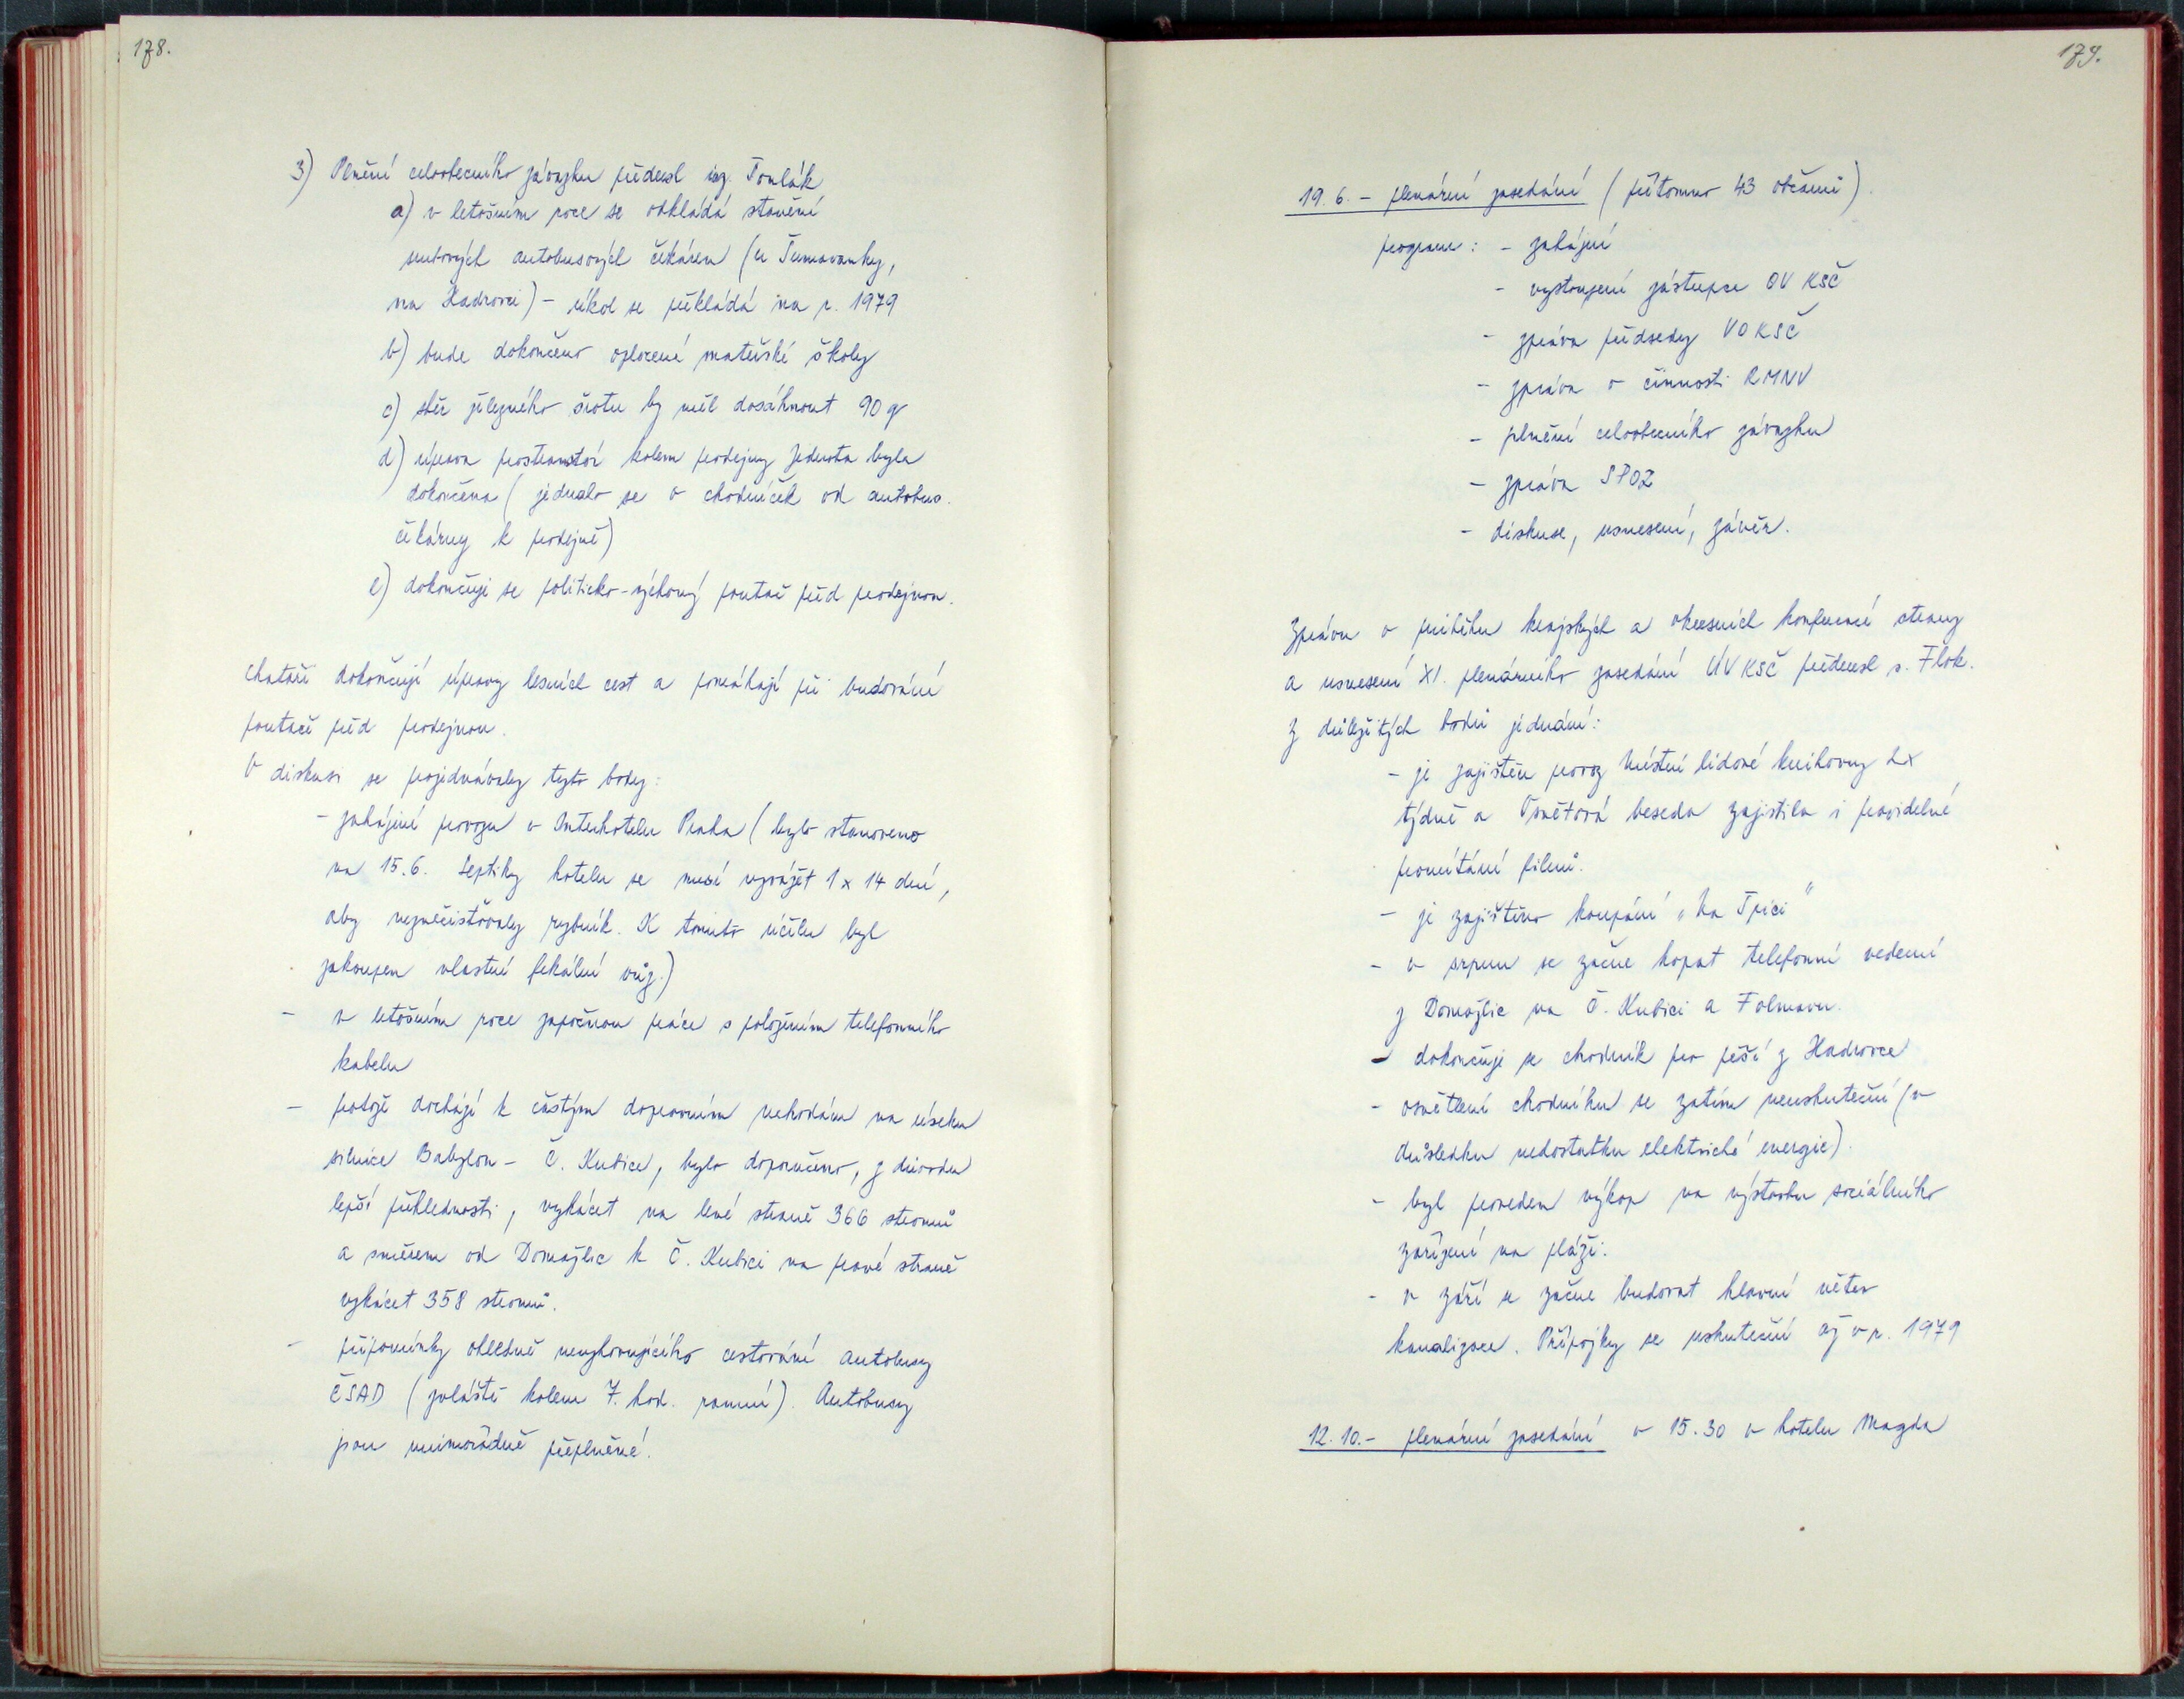 178.
3) Plnění celoobecního závazku přednesl ing. Tomlák
a) v letošním roce se odkládá stavění
autobusových čekáren (u Tumovanky,
na Hadrovci) - úkol se překládá na r. 1979
b) bude dokončeno oplocení mateřské školy
c) sběr železného šrotu by měl dosáhnout 90 q
d) úprava prostranství kolem prodejny Jednota byla
dokončena (jednalo se o chodníček od autobus.
čekárny k prodejně)
e) dokončuje se politicko-výchovný poutač před prodejnou.
Chataři dokončují úpravy lesních cest a pomáhají při budování
poutače před prodejnou.
V diskusi se projednávaly tyto body:
- zahájení provozu v Interhotelu Praha (bylo stanoveno
na 15.6. Septiky hotelu se musí vyvážet 1 x 14 dní,
aby neznečistovaly rybník. K tomuto účelu byl
zakoupen vlastní fekální vůz.)
- v letošním roce započnou práce s položením telefonního
kabelu
- protože dochází k častým dopravním nehodám na úseku
silnice Babylon - Č. Kubice, bylo doporučeno, z důvodu
lepší přehlednosti, vykácet na levé straně 366 stromů
a směrem od Domažlic k Č. Kubici na pravé straně
vykácet 358 stromů.
- připomínky ohledně nevyhovujícího cestování autobusy
ČSAD (zvláště kolem 7. hod. ranní). Autobusy
jsou mimořádně přeplněné.
179.
19. 6. - plenární zasedání (přítomno 43 občanů).
program: - zahájení
- vystoupení zástupce OV KSČ
- zpráva předsedy VO KSČ
- zpráva o činnosti RMNV
- plnění celoobecního závazku
- zpráva SPOZ
- diskuse, usnesení, závěr.
Zprávu o průběhu krajských a okresních konferencí strany
a usnesení XI. plenárního zasedání ÚV KSČ přednesl s. Flok.
Z důležitých bodů jednání:
- je zajištěn provoz Místní lidové knihovny 2x
týdně a Osvětová beseda zajistila i pravidelné
promítání filmů.
- je zajištěno koupání "Na Tpici"
- v srpnu se začne kopat telefonní vedení
z Domažlic na Č. Kubici a Folmavu.
- dokončuje se chodník pro pěší z Hadrovce
- osvětlení chodníku se zatím neuskuteční (v
důsledku nedostatku elektrické energie).
- byl proveden výkop na výstavbu sociálního
zařízení na pláži.
- v září se začne budovat hlavní větev
kanalizace. Přípojky se uskuteční až v r. 1979
12. 10. - plenární zasedání v 15.30 v hotelu Magda